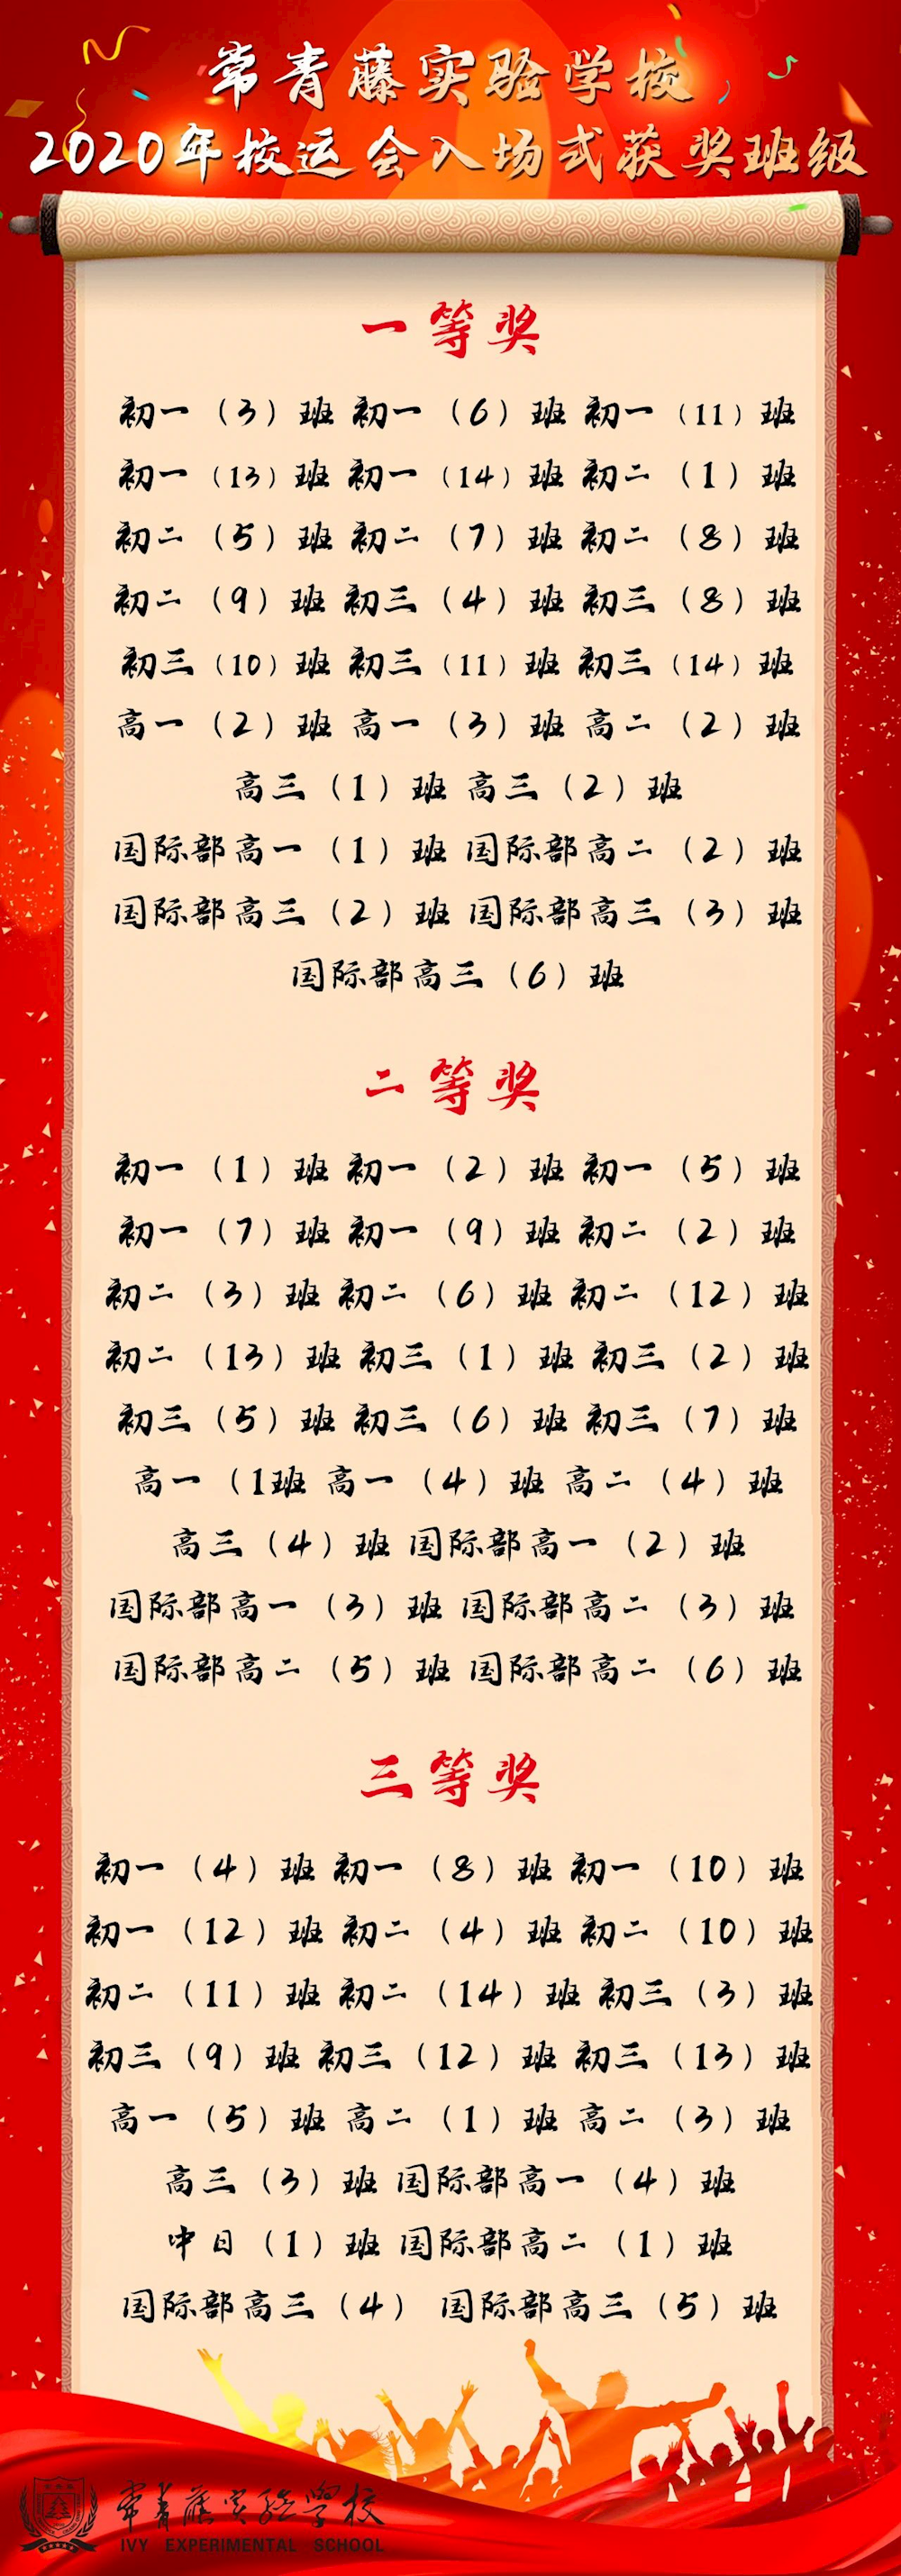 常青藤实验学校
2020年校运会入场式获奖班级
一等奖
初一（3）班 初一（6）班 初一（11）班
初一（13）班 初一（14）班 初二（1）班
初二（5）班 初二（7）班 初二（8）班
初二（9）班 初三（4）班 初三（8）班
初三（10）班 初三（11）班 初三（14）班
高一（2）班 高一（3）班 高二（2）班
高三（1）班 高三（2）班
国际部高一（1）班 国际部高二（2）班
国际部高三（2）班 国际部高三（3）班
国际部高三（6）班
二等奖
初一（1）班 初一（2）班 初一（5）班
初一（7）班 初一（9）班 初二（2）班
初二（3）班 初二（6）班 初二（12）班
初二（13）班 初三（1）班 初三（2）班
初三（5）班 初三（6）班 初三（7）班
高一（1班 高一（4）班 高二（4）班
高三（4）班 国际部高一（2）班
国际部高一（3）班 国际部高二（3）班
国际部高二（5）班 国际部高二（6）班
三等奖
初一（4）班 初一（8）班 初一（10）班
初一（12）班 初二（4）班 初二（10）班
初二（11）班 初二（14）班 初三（3）班
初三（9）班 初三（12）班 初三（13）班
高一（5）班 高二（1）班 高二（3）班
高三（3）班 国际部高一（4）班
中日（1）班 国际部高二（1）班
国际部高三（4） 国际部高三（5）班
常青藤实验学校
IVY EXPERIMENTAL SCHOOL